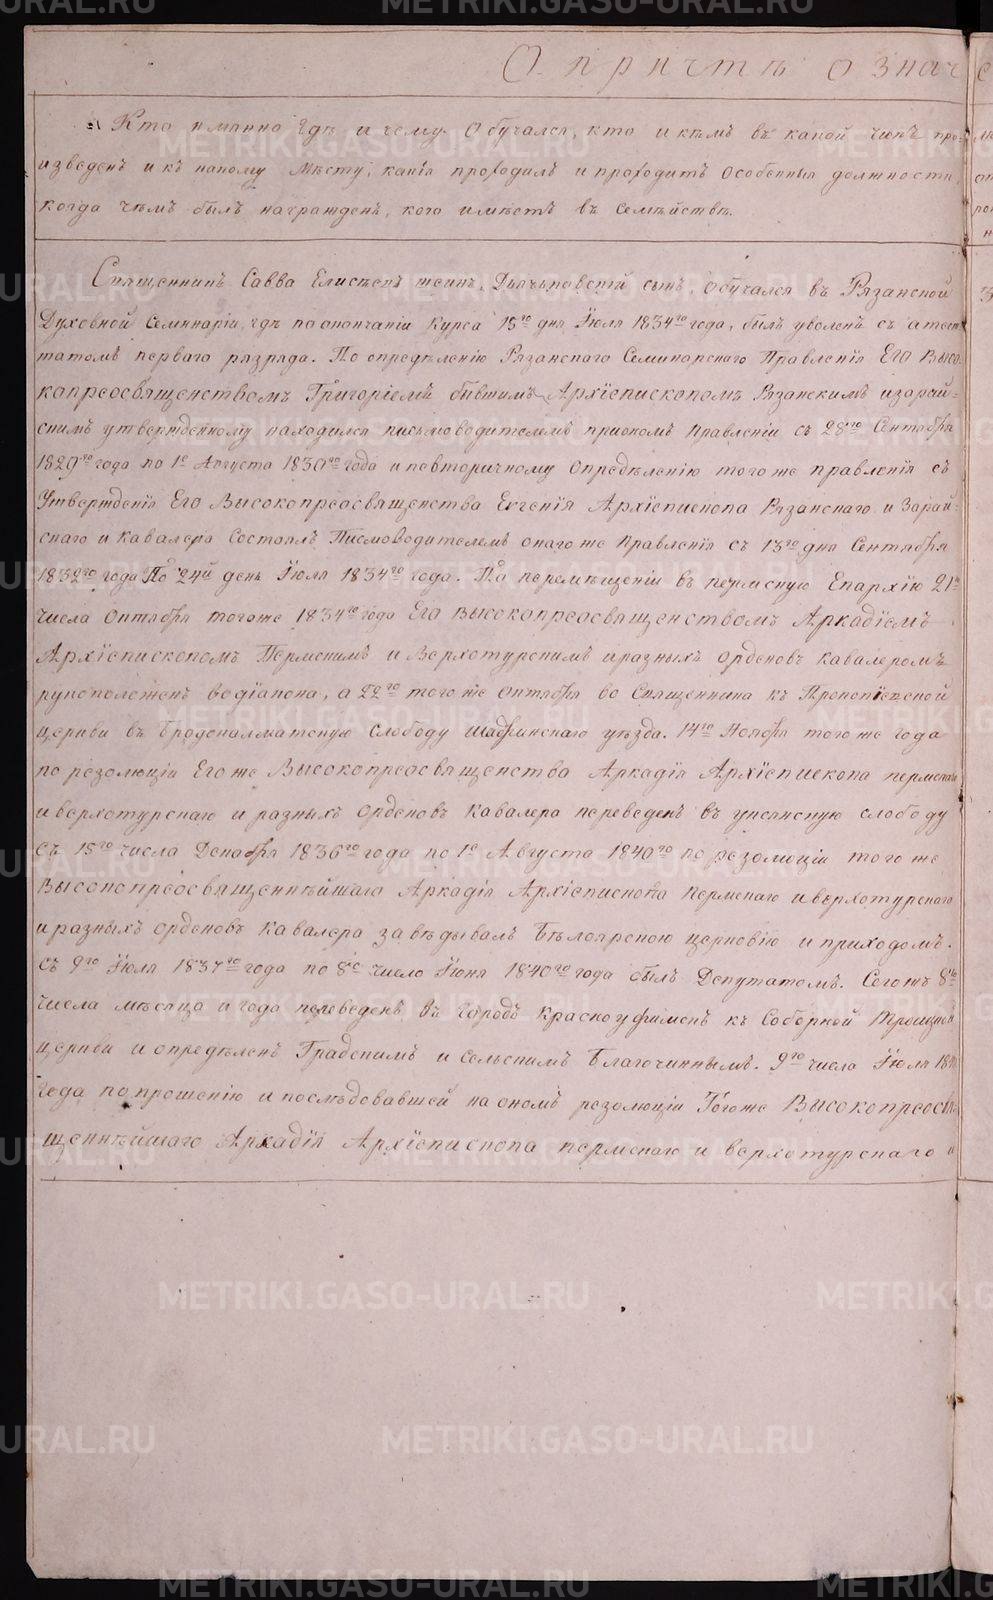 О причтѣ означ
Кто именно гдѣ и чему обучался, кто и кѣмъ въ какой чинъ про-
изведенъ и къ какому мѣсту, какія проходилъ и проходитъ особенныя должности,
когда чѣмъ былъ награжденъ, кого имѣетъ въ семействѣ.
Священникъ Савва Елисѣевъ сынъ. обучался въ Рязанской
Духовной Семинаріи, гдѣ по окончаніи курса 15го дня Іюля 1834го года, былъ уволенъ съ атес
татомъ перваго разряда. По опредѣленію Рязанскаго Семинарскаго Правленія Его Высо
копреосвященствомъ Григоріемъ бывшимъ Архіепископомъ Рязанскимъ и зарай-
скимъ утвержденному находился письмоводителемъ при ономъ Правленіи съ 28го Сентября
1829го года по 1е Августа 1830го года и по вторичному опредѣленію того же правленія съ
Утвержденія Его Высокопреосвященства Евгенія Архіепископа Рязанскаго и Зарай-
скаго и Кавалера Состоялъ Писмоводителемъ онаго же Правленія съ 13го дня Сентября
1832го года По 24й день Іюля 1834го года. По перемѣщеніи въ пермскую Епархію 21го
числа Октября того же 1834го года Его Высокопреосвященствомъ Аркадіемъ
Архіепископомъ Пермскимъ и Верхотурскимъ и разныхъ орденовъ кавалеромъ
рукоположенъ во діакона, а 22го того же октября во Священника къ Прокопіевской
церкви въ Бродокалматскую слободу Шадринскаго уѣзда. 14го Ноября того же года
по резолюціи Его же Высокопреосвященства Аркадія Архіепископа пермскаго
и верхотурскаго и разныхъ орденовъ Кавалера переведенъ въ уксянскую слободу
Съ 15го числа Декабря 1836го года по 1е Августа 1840го по резолюціи того же
Высокопреосвященнѣйшаго Аркадія Архіепископа пермскаго и верхотурскаго
и разныхъ орденовъ Кавалера завѣдывалъ Бѣлоярскою церковію и приходомъ.
Съ 9го Іюля 1837го года по 8е число Іюня 1840го года былъ Депутатомъ. Сегожъ 8го
числа мѣсяца и года переведенъ въ городъ Красноуфимскъ къ Соборной Троицкой
церкви и опредѣленъ Градскимъ и сельскимъ Благочиннымъ. 9го числа Іюля
года по прошенію и послѣдовавшей на ономъ резолюціи Тогоже Высокопреосвя
щеннѣйшаго Аркадія Архіепископа пермскаго и верхотурскаго и
METRIKI.GASO-URAL.RU